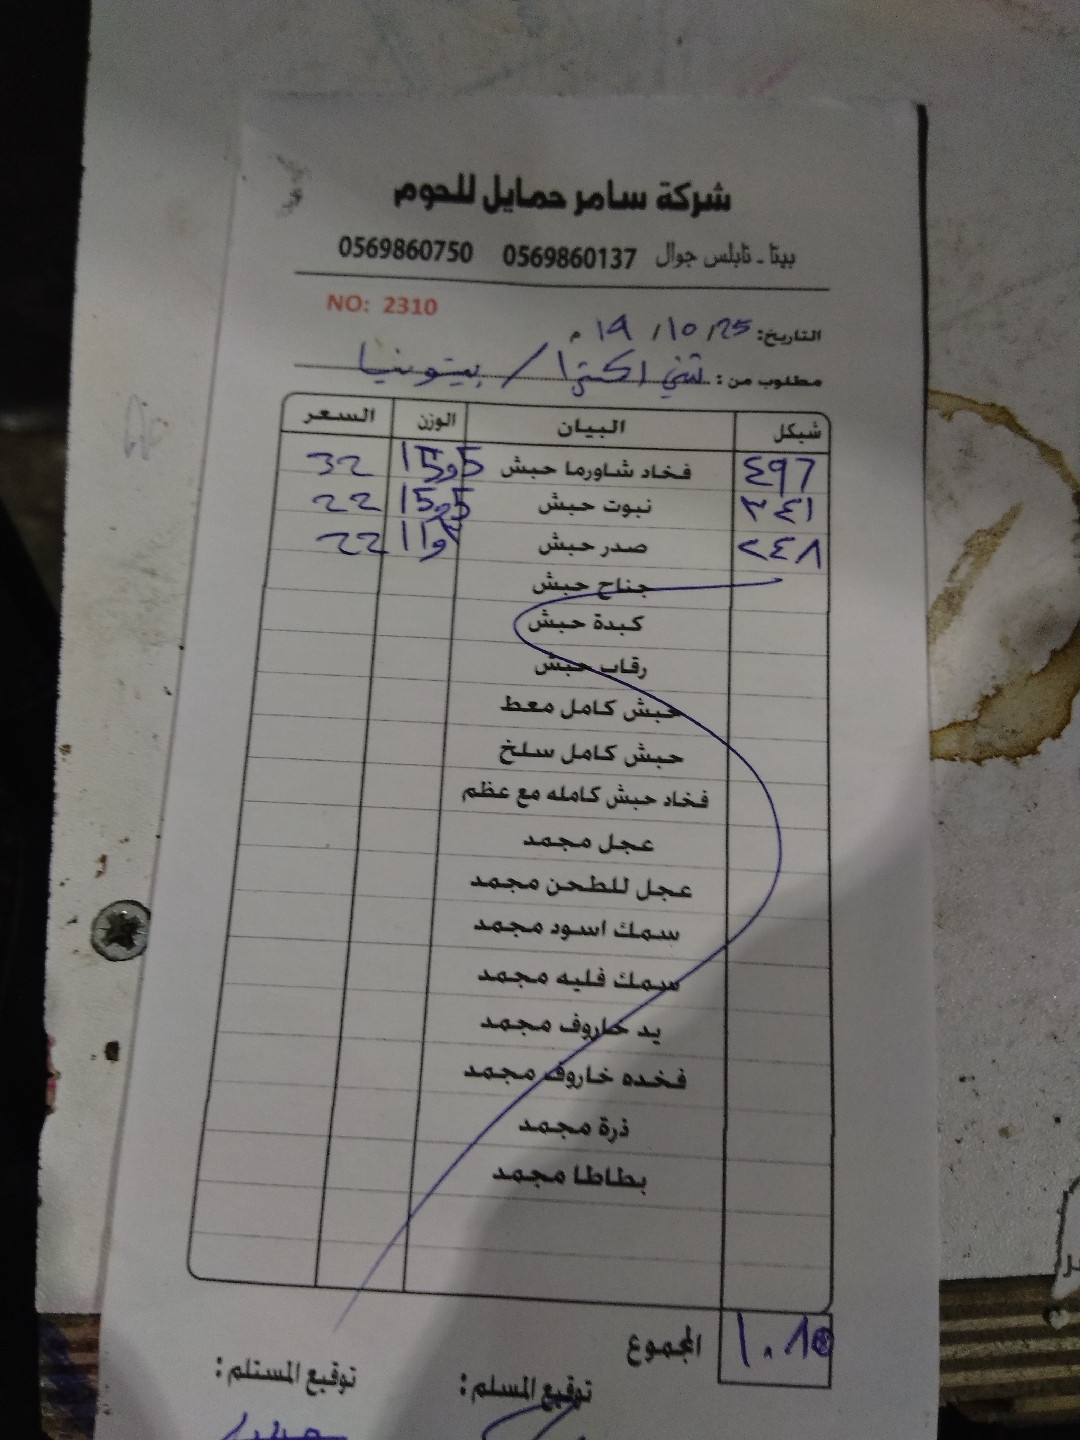 شركة سامر حمايل للحوم
بيتا - نابلس جوال 0569860137 0569860750
NO: 2310
التاريخ: 25/ 10/ 19 م
مطلوب من : اكسترا / بيتونيا
شيكل البيان الوزن السعر
٤٩٦ فخاد شاورما حبش 15و5 32
٣٤١ نبوت حبش 15و5 22
٢٤٨ صدر حبش 22
جناح حبش
كبدة حبش
رقاب حبش
حبش كامل معط
حبش كامل سلخ
فخاد حبش كامله مع عظم
عجل مجمد
عجل للطحن مجمد
سمك اسود مجمد
سمك فليه مجمد
يد خاروف مجمد
فخده خاروف مجمد
ذرة مجمد
بطاطا مجمد
المجموع
توقيع المسلم : توقيع المستلم :